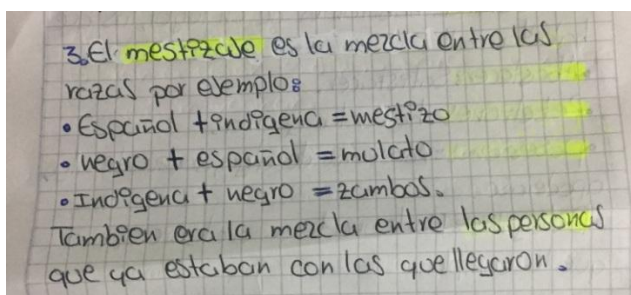 3. El mestizaje es la mezcla entre las
razas por ejemplo:
• Español + indigena = mestizo
• negro + español = mulato
• Indigena + negro = zambos.
Tambien era la mezcla entre las personas
que ya estaban con las que llegaron.